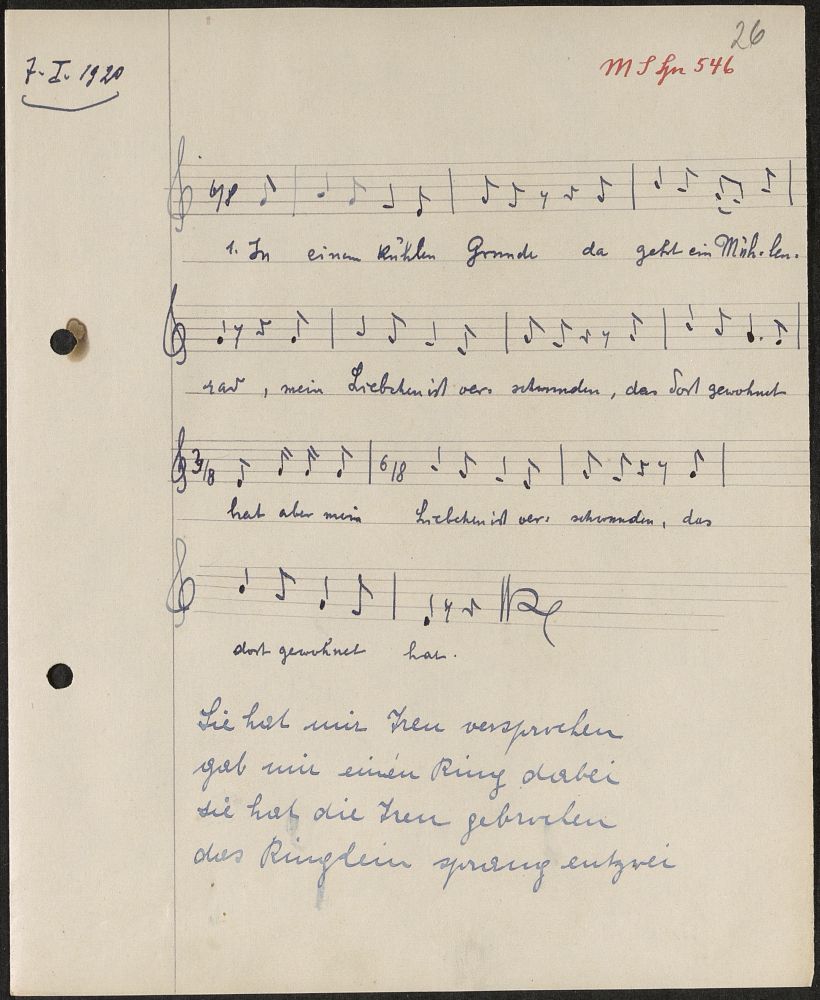 26
7. I. 1920
M S Gr 546
6/8
1. In einem kühlen Grunde da geht ein Müh-len-
rad, mein Liebchen ist ver- schwunden, das dort gewohnet
3/8 6/8
hat aber mein Liebchen ist ver- schwunden, das
dort gewohnet hat.
Sie hat mir Treu versprochen
gab mir einen Ring dabei
sie hat die Treu gebrochen
das Ringlein sprang entzwei